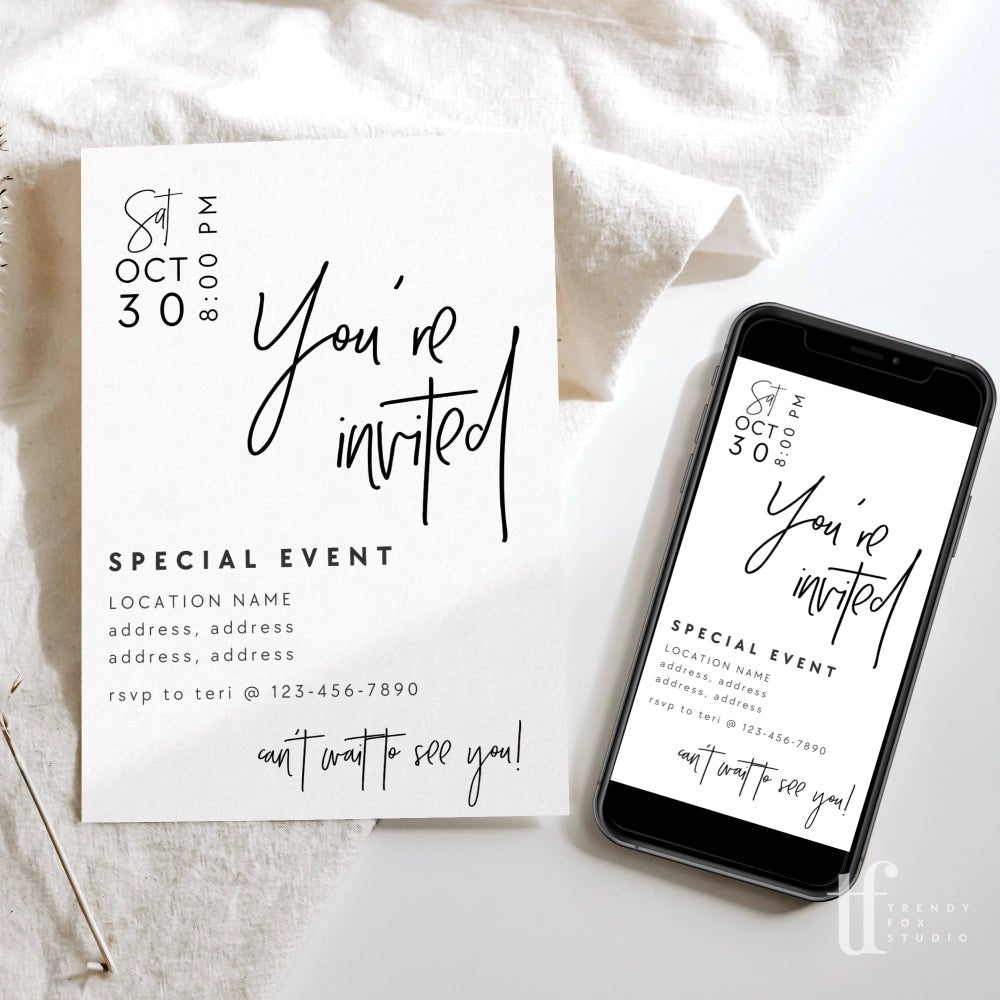 Sat
OCT
30
8:00 PM
You're
invited
SPECIAL EVENT
LOCATION NAME
address, address
address, address
rsvp to teri @ 123-456-7890
can't wait to see you!
Sat
OCT
30
8:00 PM
You're
invited
SPECIAL EVENT
LOCATION NAME
address, address
address, address
rsvp to teri @ 123-456-7890
can't wait to see you!
tf
TRENDY
FOX
STUDIO